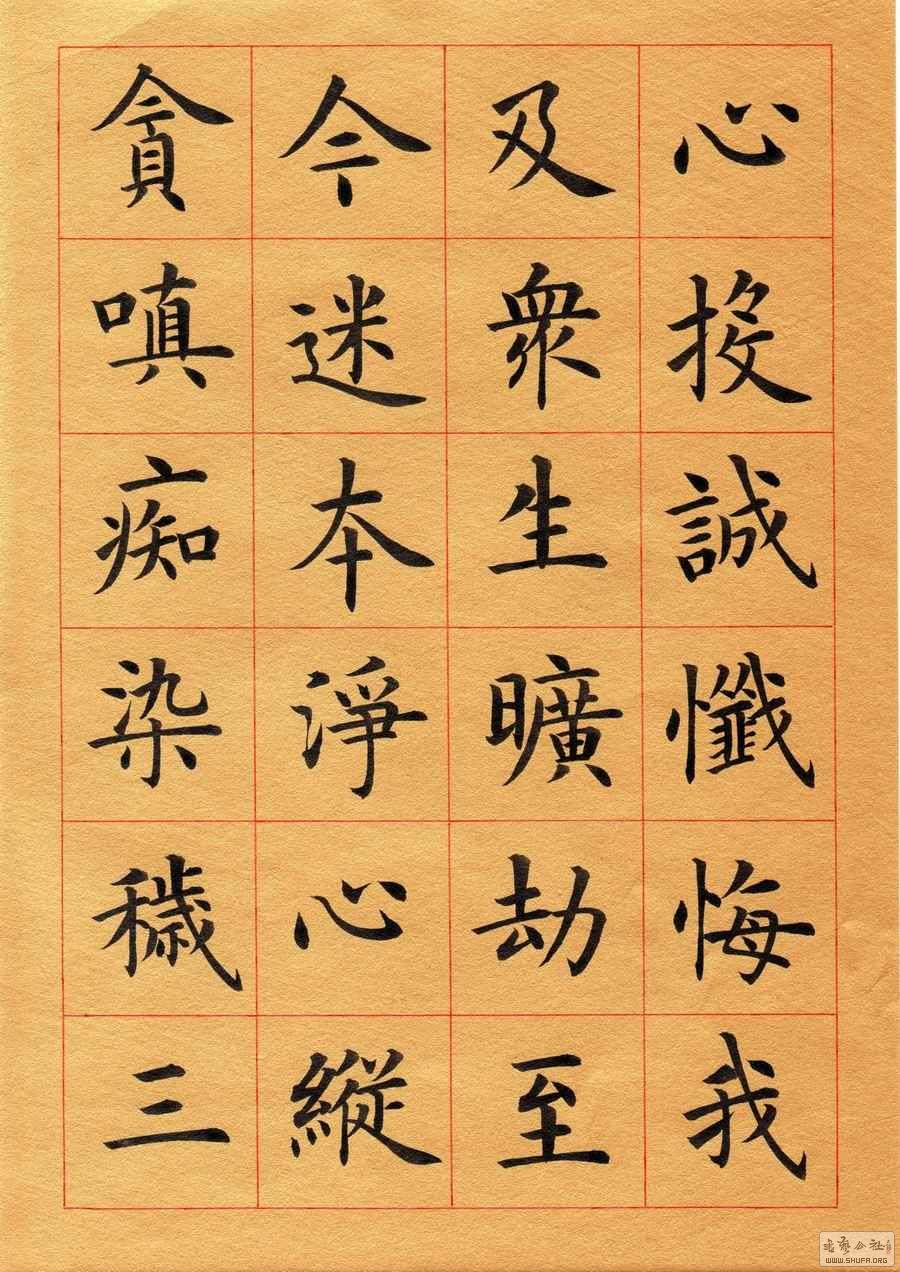 心投誠懺悔我
及衆生曠劫至
今迷本淨心縱
貪嗔痴染穢三
WWW.SHUFA.ORG